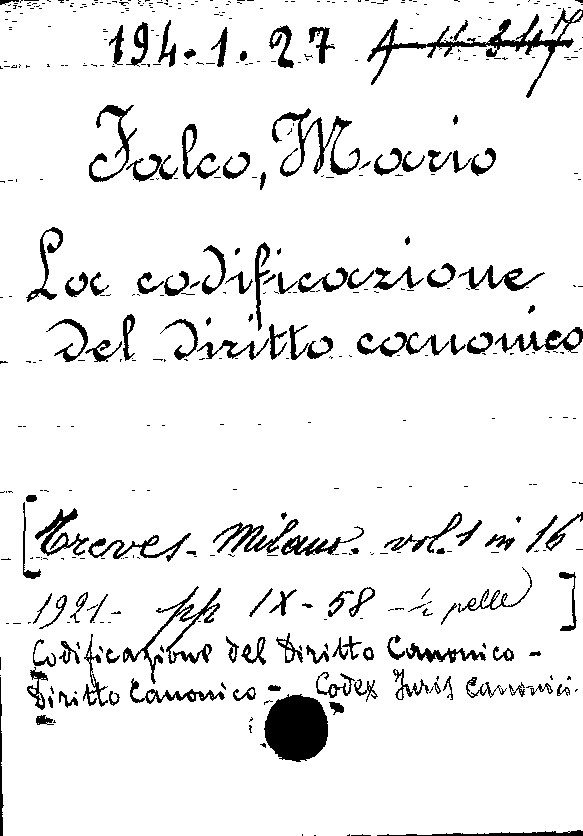 194-1.27 A-11-347
Falco, Mario
La codificazione
del diritto canonico
[Treves - Milano. vol. 1 in 16
1921 - pp IX - 58 - ½ pelle]
Codificazione del Diritto Canonico -
Diritto Canonico - Codex Juris Canonici.